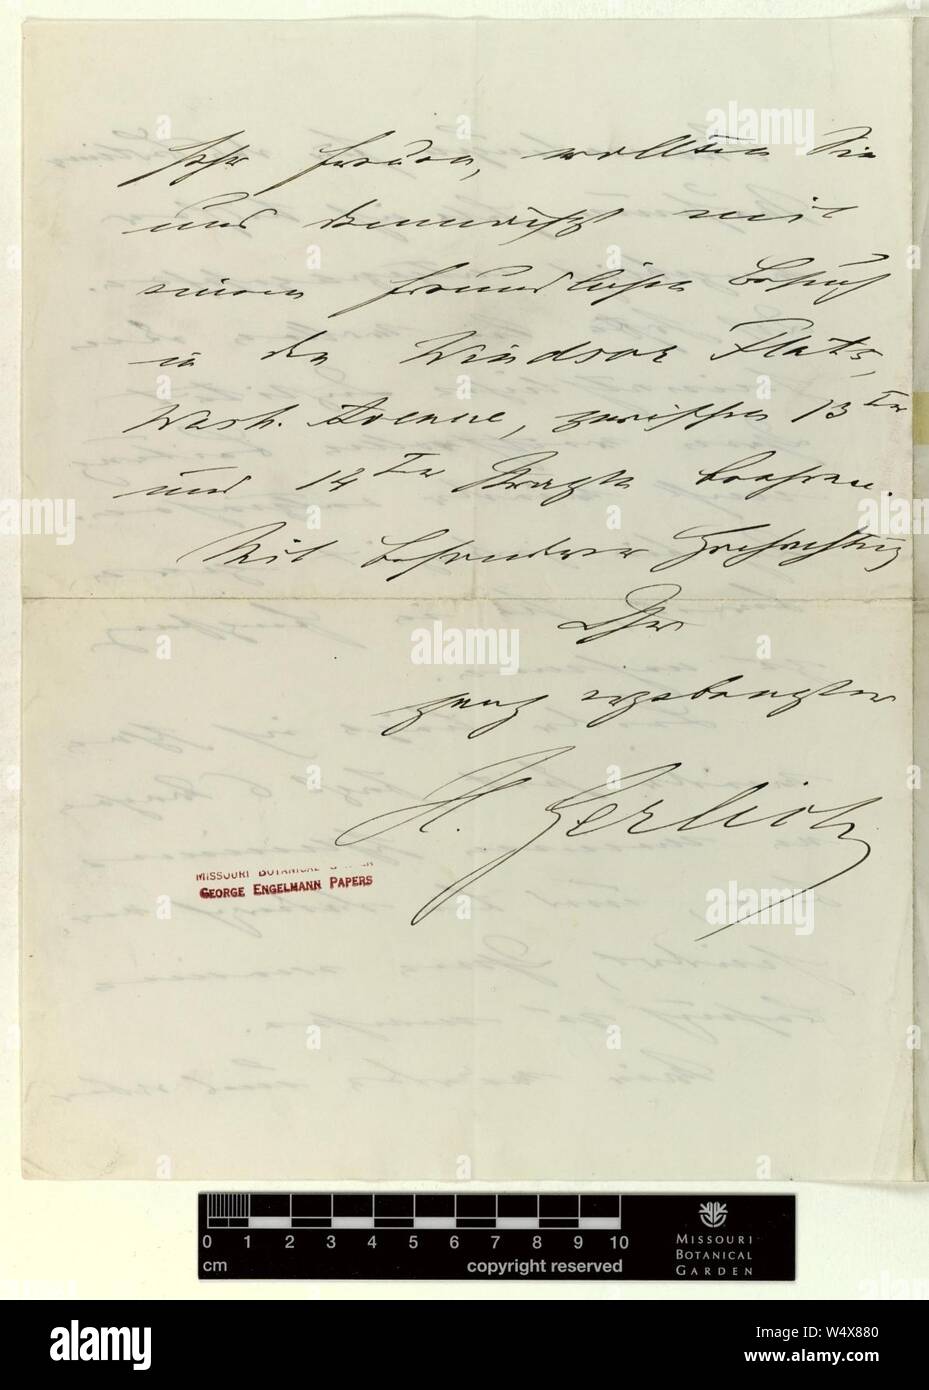 sehr freuen, wollten Sie
uns demnächst mit
einem freundlichen Besuch
in den Windsor Flats,
Wash. Avenue, zwischen 13ter
und 14ter Straße beehren.
Mit besonderer Hochachtung
Ihr
ganz ergebenster
H. Gerlich
MISSOURI BOTANICAL GARDEN
GEORGE ENGELMANN PAPERS
0 1 2 3 4 5 6 7 8 9 10
cm
copyright reserved
MISSOURI
BOTANICAL
GARDEN
alamy
Image ID: W4X880
www.alamy.com